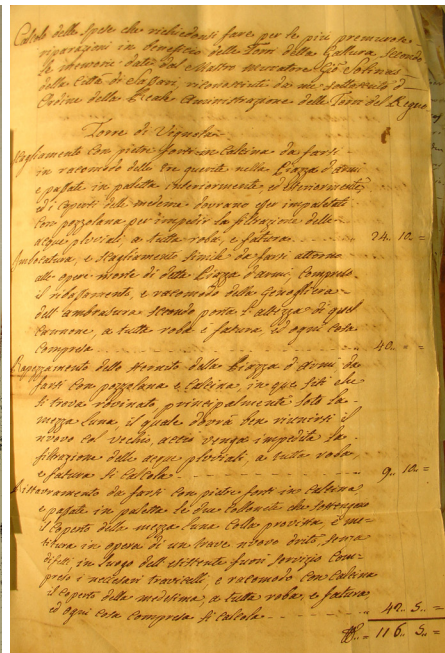 Calcolo delle spese che richiedonsi fare per le più premurose
riparazioni in beneficio delle Torri della Gallura secondo
le istruzioni date dal Mastro muratore Gio Solinas
della Città di Sassari, riconosciute da me sottoscritto d'
Ordine della Reale Amministrazione delle Torri del Regno
Torre di Vignola
con pietre forti in Calcina da farsi
in racomodo delle tre guerite nella Piazza d'armi
e passate in paletta interiormente, ed esteriormente,
ed i Coperti delle medeme dovrano esser impastati
con pozzolana per impedir la filtrazione delle
acque pluviali, a tutta roba, e fatura 24. 10. =
Imbocatura, e simile da farsi attorno
alle opere morte di detta Piazza d'armi, compreso
il, e racomodo della
dell'ambrasura secondo porta l'altezza di quel
Cannone, a tutta roba e fatura, ed ogni cosa
compresa 40. =
Rapezzamento dello sternato della Piazza d'Armi da
farsi con pozzolana e Calcina, in que siti che
si trova rovinato principalmente sotto la
mezza luna, il quale dovrà ben riunirsi il
nuovo col vechio, acciò venga impedita la
filtrazione delle acque pluviali, a tutta roba,
e fatura si calcola 9. 10. =
da farsi con pietre forti in Calcina
e passate in paletta le due Collonete che sostengono
il coperto della mezza luna colla provista, e me-
titura in opera di un trave nuovo drito senza
difeti, in luogo dell'esistente fuori servizio com-
preso i necessari travicelli, e racomodo con Calcina
il Coperto della medesima, a tutta roba, e fatura,
ed ogni cosa compresa si calcola 42. 5. =
116. 5. =